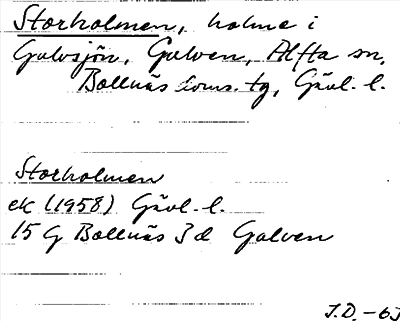 Storholmen, holme i
Galvsjön, Galven, Alfta sn,
Bollnäs doms. tg, Gävl. l.
Storholmen
ek (1958) Gävl. l.
15 G Bollnäs 3 d Galven
J.D. -63